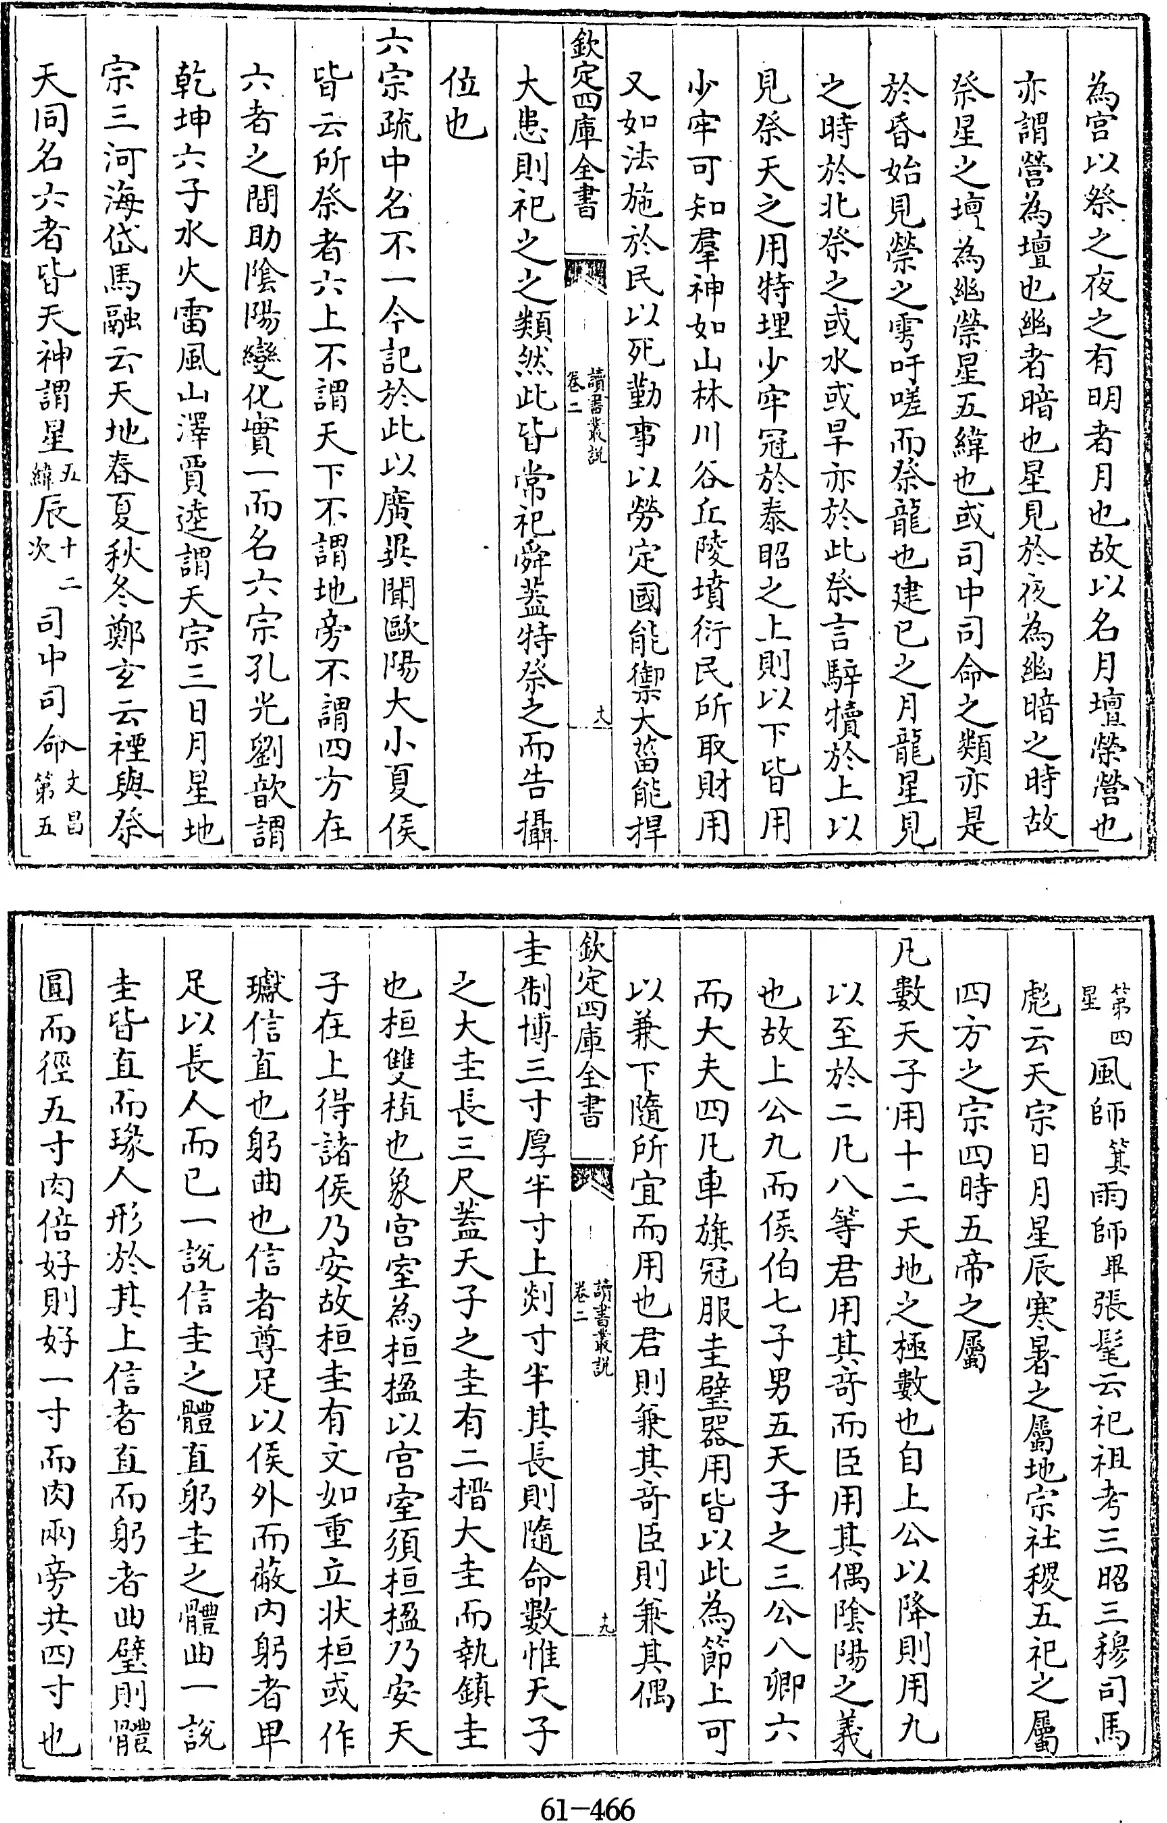 為宫以祭之夜之有明者月也故以名月壇禜營也
亦謂營為壇也幽者暗也星見於夜為幽暗之時故
祭星之壇為幽禜星五緯也或司中司命之類亦是
於昏始見禜之雩吁嗟而祭龍也建巳之月龍星見
之時於北祭之或水或旱亦於此祭言騂犢於上以
見祭天之用特埋少牢冠於泰昭之上則以下皆用
少牢可知羣神如山林川谷丘陵墳衍民所取財用
又如法施於民以死勤事以勞定國能禦大菑能捍
欽定四庫全書
讀書叢說
卷二
十八
大患則祀之之類然此皆常祀舜蓋特祭之而告攝
位也
六宗疏中名不一今記於此以廣異聞歐陽大小夏侯
皆云所祭者六上不謂天下不謂地旁不謂四方在
六者之間助陰陽變化實一而名六宗孔光劉歆謂
乾坤六子水火雷風山澤賈逵謂天宗三日月星地
宗三河海岱馬融云天地春夏秋冬鄭玄云禋與祭
天同名六者皆天神謂星五緯辰十二次司中司命文昌第五
第四星風師箕雨師畢張髦云祀祖考三昭三穆司馬
彪云天宗日月星辰寒暑之屬地宗社稷五祀之屬
四方之宗四時五帝之屬
凡數天子用十二天地之極數也自上公以降則用九
以至於二凡八等君用其奇而臣用其偶陰陽之義
也故上公九而侯伯七子男五天子之三公八卿六
而大夫四凡車旗冠服圭璧器用皆以此為節上可
以兼下隨所宜而用也君則兼其奇臣則兼其偶
欽定四庫全書
讀書叢說
卷二
十九
圭制博三寸厚半寸上剡寸半其長則隨命數惟天子
之大圭長三尺蓋天子之圭有二搢大圭而執鎮圭
也桓雙植也象宫室為桓楹以宫室須桓楹乃安天
子在上得諸侯乃安故桓圭有文如重立狀桓或作
瓛信直也躬曲也信者尊足以侯外而蔽内躬者卑
足以長人而已一說信圭之體直躬圭之體曲一說
圭皆直而瑑人形於其上信者直而躬者曲璧則體
圓而徑五寸肉倍好則好一寸而肉兩旁共四寸也
61-466